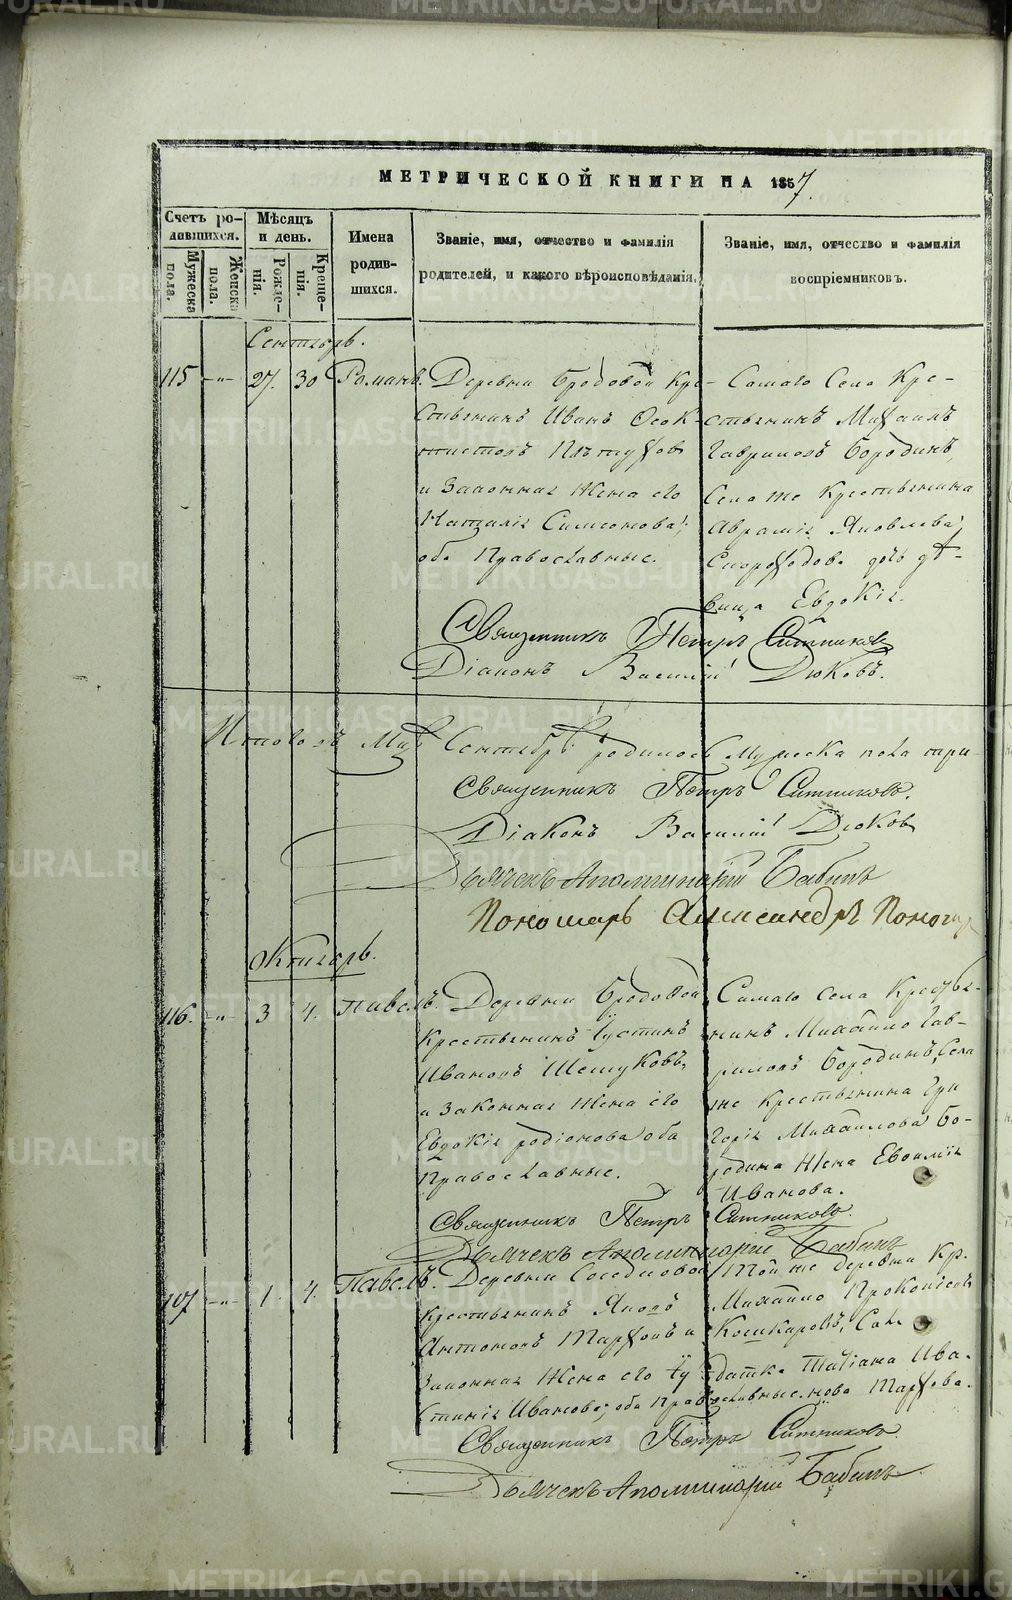 МЕТРИЧЕСКОЙ КНИГИ НА 1857.
Счетъ ро-
дившихся.
Мужеска пола.
Женска пола.
Мѣсяцъ
и день.
Рожде-
нія.
Креще-
нія.
Имена
родив-
шихся.
Званіе, имя, отчество и фамилія
родителей, и какого вѣроисповѣданія.
Званіе, имя, отчество и фамилія
воспріемниковъ.
Сентябрь.
115 -„- 27. 30 Романъ.
Деревни Бродовой Кре-
стьянинъ Иванъ
Пѣтуховъ
и Законная Жена его
Наталія Симеонова;
оба Православные.
Самаго Села Кре-
стьянинъ Михаилъ
Гавриловъ Бородинъ,
Села же Крестьянина
Авраамія Яковлева
Скороходова дочь дѣ-
вица Евдокія.
Священникъ Петръ Ситниковъ
Діаконъ Василій Дюковъ.
Итого въ Мцѣ Сентябрѣ родилось Мужеска пола три
Священникъ Петръ Ситниковъ.
Діаконъ Василій Дюковъ
Дьячекъ Аполлинарій Бабинъ
Пономарь Александръ
Октябрь.
116. -„- 3 4. Павелъ.
Деревни Бродовой
Крестьянинъ Іустинъ
Ивановъ Шешуковъ,
и Законная Жена его
Евдокія Родіонова оба
Православные.
Самаго села Крестья-
нинъ Михаило Гав-
риловъ Бородинъ, Села
же Крестьянина Гри
горія Михайлова Бо-
родина Жена Евфимія
Иванова.
Священникъ Петръ Ситниковъ.
Дьячекъ Аполлинарій Бабинъ
107 -„- 1. 4. Павелъ.
Деревни Соседковой
Крестьянинъ Яковъ
Антоновъ Тарховъ и
Законная Жена его Іу-
стинія Иванова; оба Православные.
Той же деревни Кр.
Михаило Прокопьевъ
Кошкаровъ, Сол
датка Татіана Ива-
нова Тархова.
Священникъ Петръ Ситниковъ
Дьячекъ Аполлинарій Бабинъ
METRIKI.GASO-URAL.RU